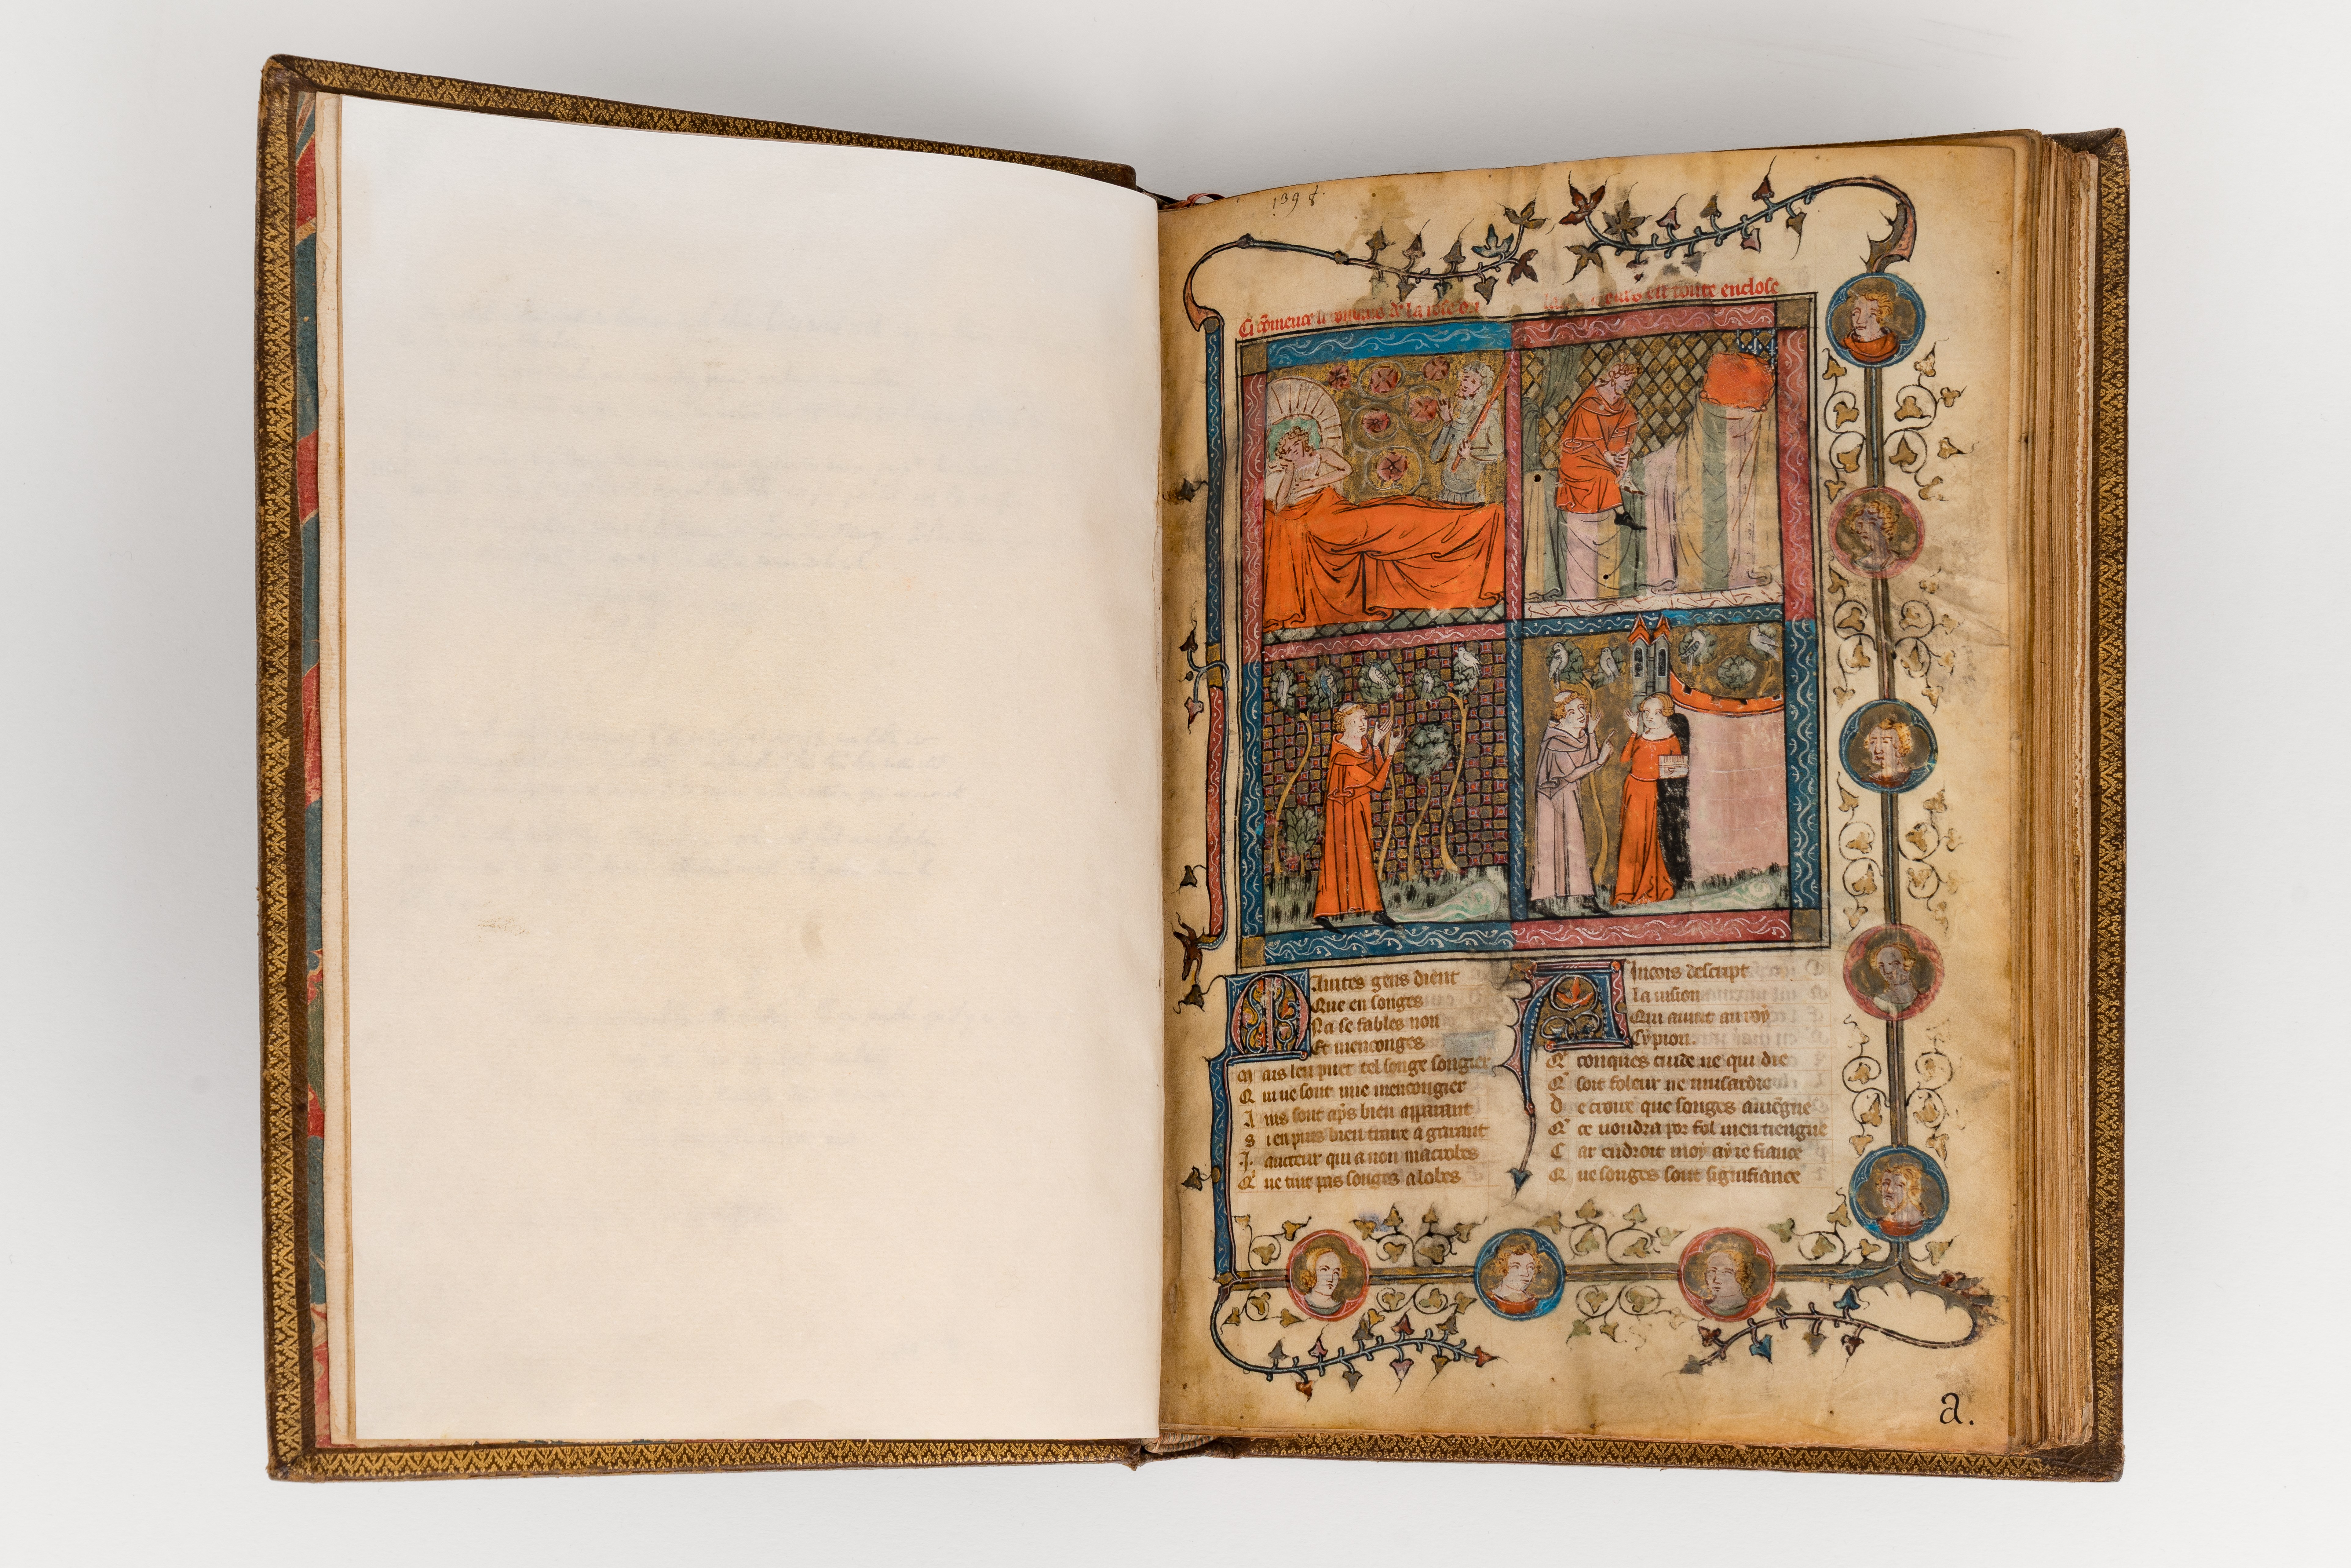 1398
Ci cõmence li de la rose ou
est toute enclose
Maintes gens dient
Que en songes
Na se fables non
Et menconges
Mais len puet tel songe songier
Qui ne sont mie mencongier
Ains sont aps bien apparant
Si en puis bien traire a garant
J. aucteur qui a non macrobes
Qͥ ne tint pas songes a lobes
Aincois descript
La vision
Qui avint au roy
Cypion.
Qͥ conques cuide ne qui die
Qͥ soit foleur ne musardie
De croire que songes aviegne
Qͥ ce voudra por fol men tiengne
Car endroit moy ay ie fiance
Que songes sont signifiance
a.